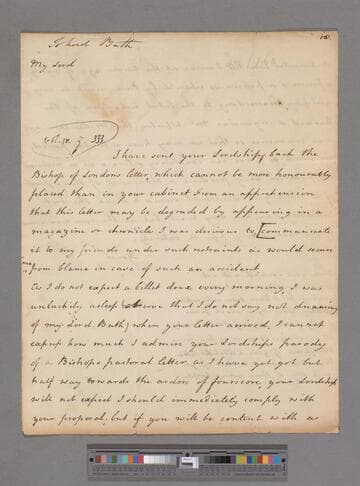 To Lord Bath
My Lord
I have sent your Lordship back the
Bishop of Londons letter, which cannot be more honourably
placed than in your cabinet From an apprehension
that this letter may be degraded by appearing in a
magazine or chronicle I was desirous to [communicate
it to my friends under such restraints as would secure
from blame in case of such an accident
As I do not expect a billet doux every morning, I was
unluckily asleep (observe that I do not say not dreaming
of my Lord Bath) when your letter arrived, I cannot
express how much I admire your Lordships parody
of a Bishops pastoral letter. as I have yet got but
half way towards the ardors of fourscore, your Lordship
will not expect I should immediately comply with
your proposal, but if you will be content with a